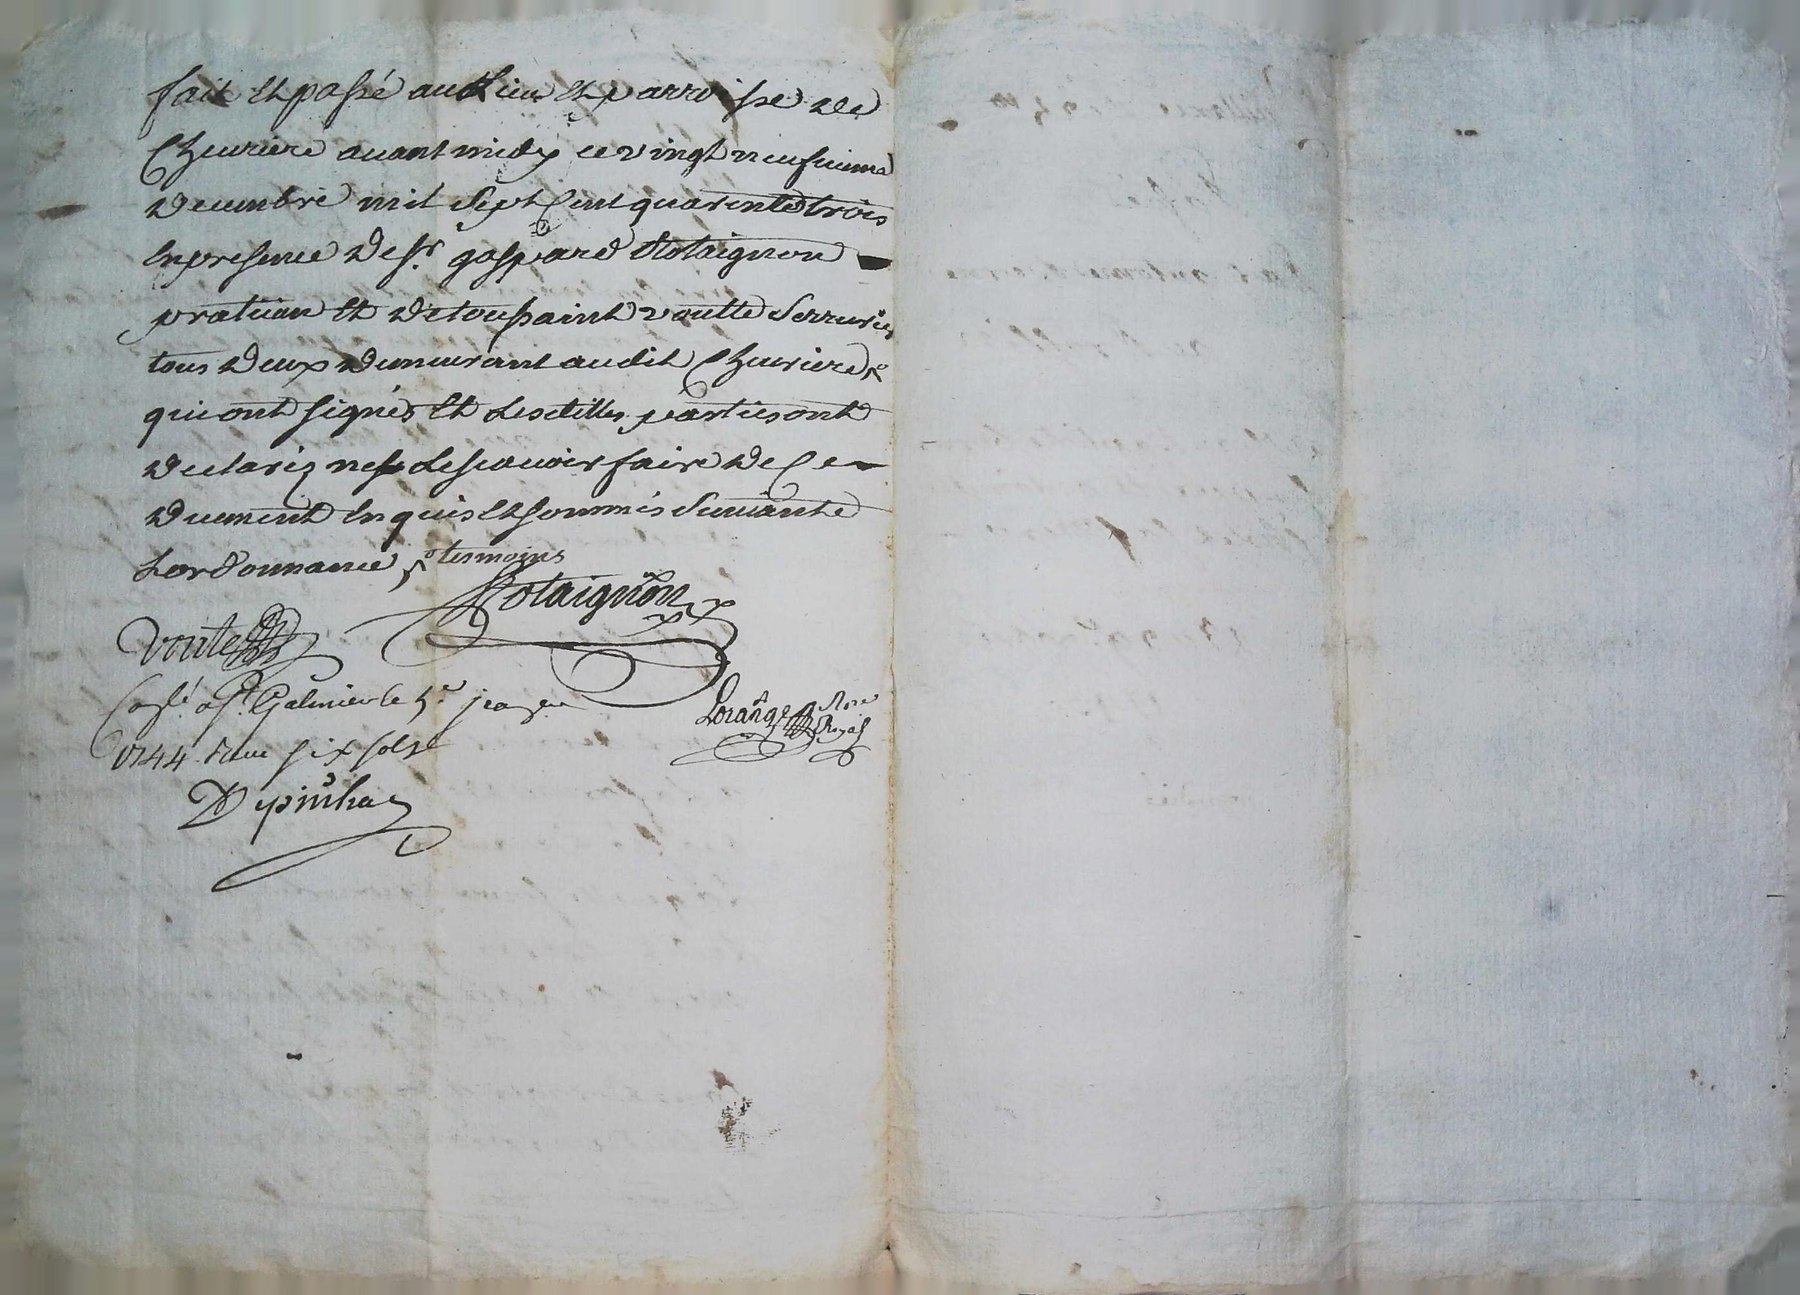 fait et passé au Lieu et parroisse de
Cheuriere auant midy ce vingt neufuieme
Decembre mil Sept Cent quarente trois
En presence de sr. gaspard Rotaignon
praticien et de toussaint voutte Serrurier
tous deux demeurant audit Cheuriere
qui ont signés et Lesdittes parties ont
declarez ne Le scauoir faire de Ce
duement Enquis et sommés Suiuant
Lordonnance tesmoins
Rotaignon
Voute
a St. Galmier le 5e. janer
Lorange Nore Royal
1744. Reçu six sols
Depinhac